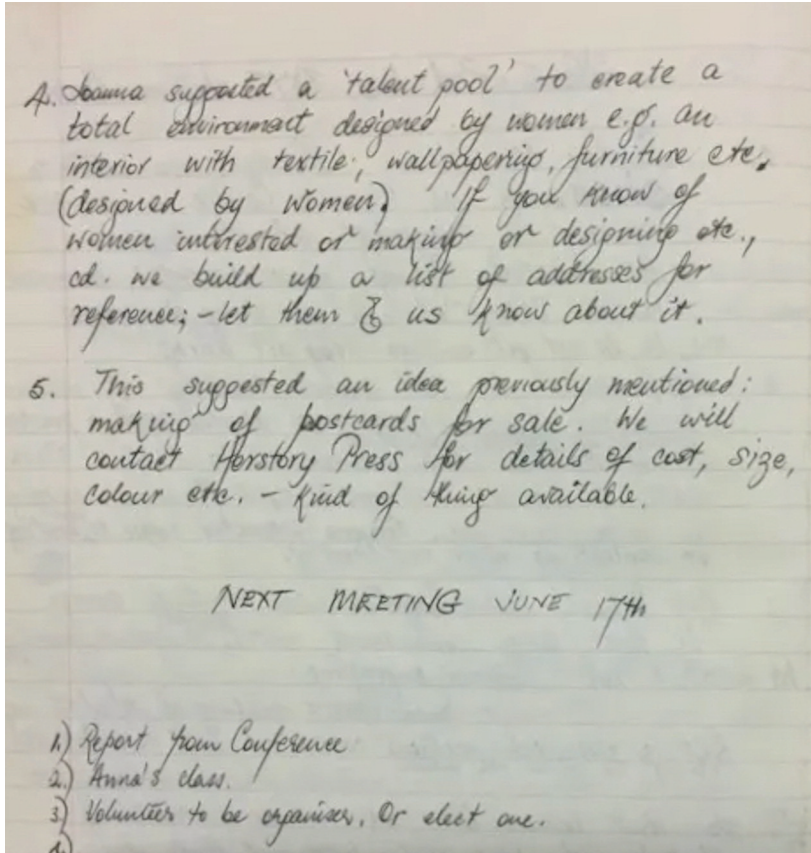 4. Joanna supported a 'talent pool' to create a
total environment designed by women e.g. an
interior with textile, wallpapering, furniture etc.
(designed by women) If you know of
women interested or making or designing etc.,
cd. we build up a list of addresses for
reference; - let them & us know about it.
5. This suggested an idea previously mentioned:
making of postcards for sale. We will
contact Herstory Press for details of cost, size,
colour etc. - kind of thing available.
NEXT MEETING JUNE 17th
1.) Report from Conference
2.) Anna's class.
3) Volunteer to be organiser. Or elect one.